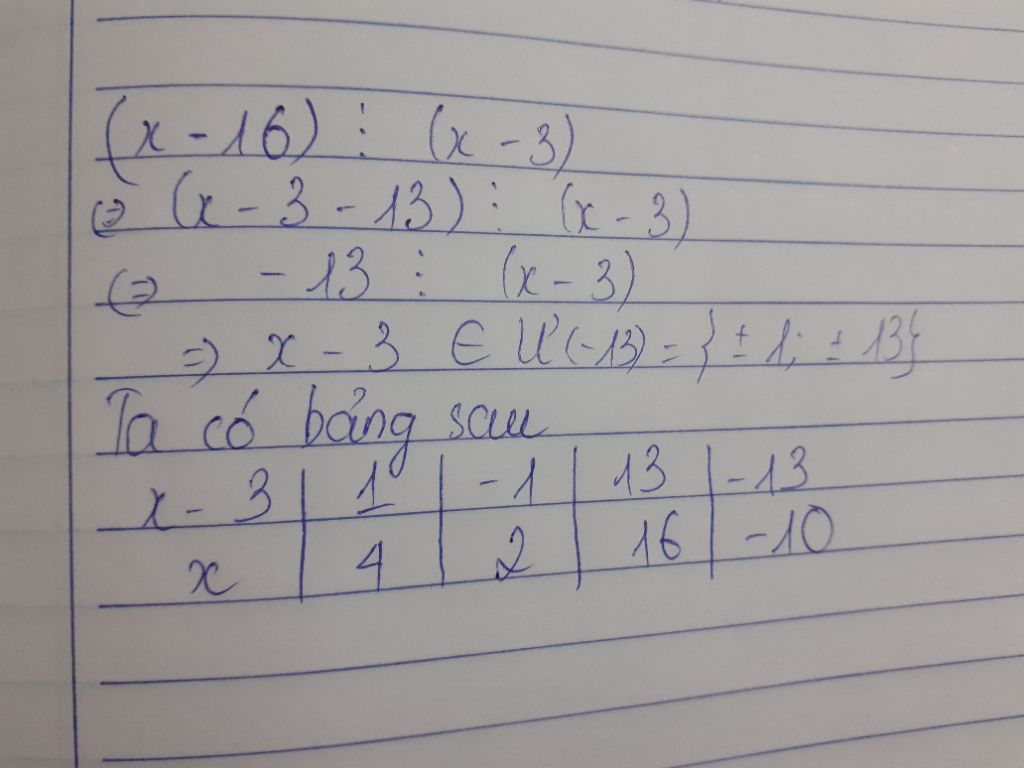 (x - 16) ⋮ (x - 3)
⇔ (x - 3 - 13) ⋮ (x - 3)
⇔ - 13 ⋮ (x - 3)
⇒ x - 3 ∈ Ư(-13) = {± 1; ± 13}
Ta có bảng sau
x - 3 | 1 | -1 | 13 | -13
x | 4 | 2 | 16 | -10